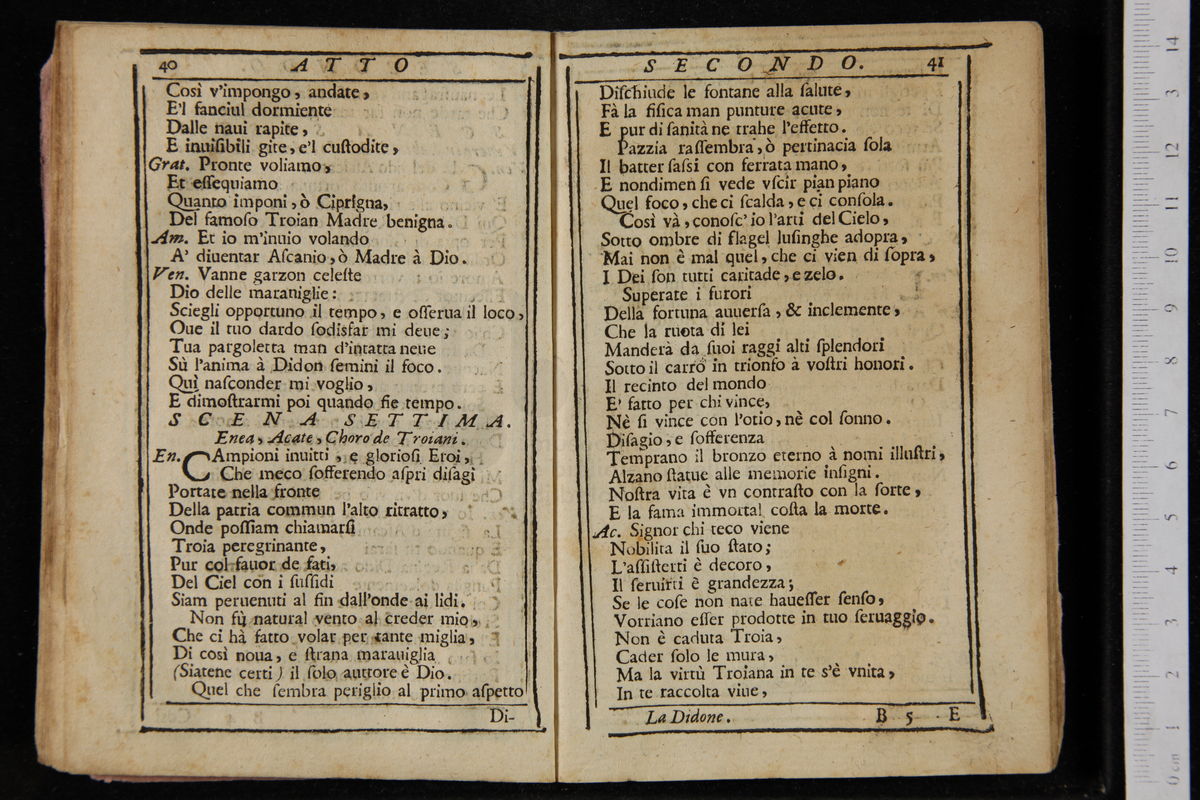 40 ATTO
Così v'impongo, andate,
E'l fanciul dormiente
Dalle naui rapite,
E inuiſibili gite, e'l cuſtodite,
Grat. Pronte voliamo,
Et eſſequiamo
Quanto imponi, ò Ciprigna,
Del famoſo Troian Madre benigna.
Am. Et io m'inuio volando
A' diuentar Aſcanio, ò Madre à Dio.
Ven. Vanne garzon celeſte
Dio delle marauiglie:
Sciegli opportuno il tempo, e oſſerua il loco,
Oue il tuo dardo ſodisfar mi deue;
Tua pargoletta man d'intatta neue
Sù l'anima à Didon ſemini il foco.
Quì naſconder mi voglio,
E dimoſtrarmi poi quando fie tempo.
SCENA SETTIMA.
Enea, Acate, Choro de Troiani.
En. CAmpioni inuitti, e glorioſi Eroi,
Che meco ſofferendo aſpri diſagi
Portate nella fronte
Della patria commun l'alto ritratto,
Onde poſſiam chiamarſi
Troia peregrinante,
Pur col fauor de fati,
Del Ciel con i ſuſſidi
Siam peruenuti al fin dall'onde ai lidi.
Non fù natural vento al creder mio,
Che ci hà fatto volar per tante miglia,
Di così noua, e ſtrana marauiglia
(Siatene certi) il ſolo auttore è Dio.
Quel che ſembra periglio al primo aſpetto
Di-
SECONDO. 41
Diſchiude le fontane alla ſalute,
Fà la fiſica man punture acute,
E pur di ſanità ne trahe l'effetto.
Pazzia raſſembra, ò pertinacia ſola
Il batter ſaſsi con ferrata mano,
E nondimen ſi vede vſcir pian piano
Quel foco, che ci ſcalda, e ci conſola.
Così và, conoſc' io l'arti del Cielo,
Sotto ombre di flagel luſinghe adopra,
Mai non è mal quel, che ci vien di ſopra,
I Dei ſon tutti caritade, e zelo.
Superate i furori
Della fortuna auuerſa, & inclemente,
Che la ruota di lei
Manderà da ſuoi raggi alti ſplendori
Sotto il carro in trionfo à voſtri honori.
Il recinto del mondo
E' fatto per chi vince,
Nè ſi vince con l'otio, nè col ſonno.
Diſagio, e ſofferenza
Temprano il bronzo eterno à nomi illuſtri,
Alzano ſtatue alle memorie inſigni.
Noſtra vita è vn contraſto con la ſorte,
E la fama immortal coſta la morte.
Ac. Signor chi teco viene
Nobilita il ſuo ſtato;
L'aſſiſterti è decoro,
Il ſeruirti è grandezza;
Se le coſe non nate haueſſer ſenſo,
Vorriano eſſer prodotte in tuo ſeruaggio.
Non è caduta Troia,
Cader ſolo le mura,
Ma la virtù Troiana in te s'è vnita,
In te raccolta viue,
La Didone. B 5 E
0 cm 1 2 3 4 5 6 7 8 9 10 11 12 13 14